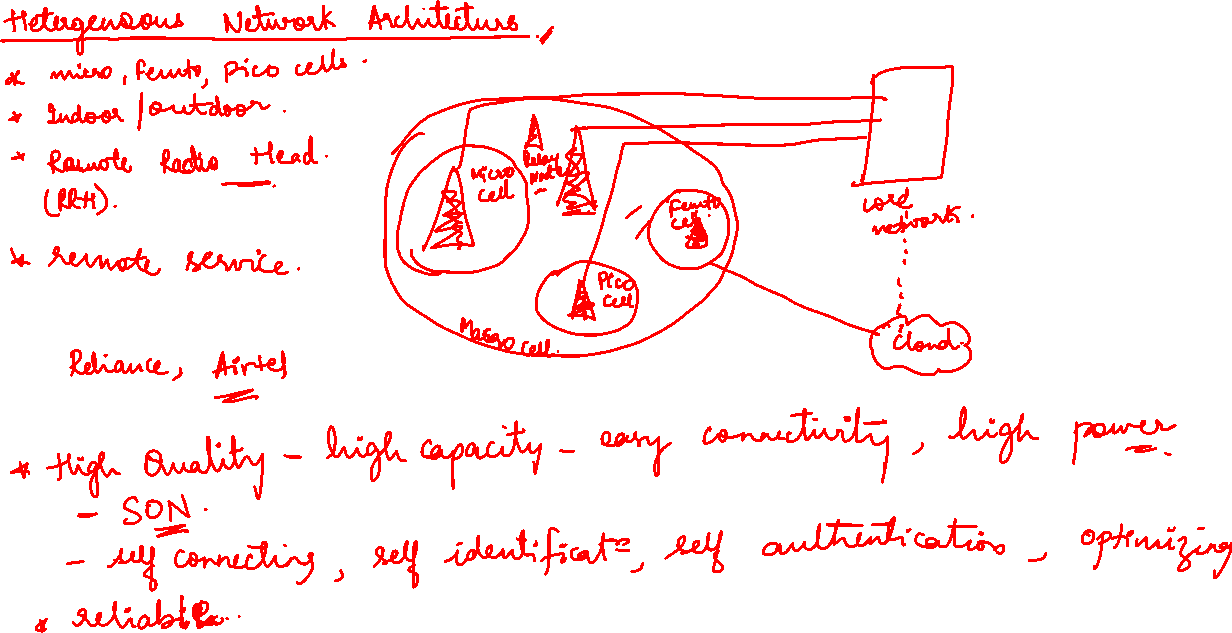 Heterogeneous Network Architecture
* micro, Femto, Pico cells.
* Indoor / outdoor.
* Remote Radio Head.
(RRH).
* remote service.
Relay
Node
Micro
cell
Femto
cell
Pico
cell
Macro cell.
core
network.
cloud
Reliance, Airtel
* High Quality - high capacity - easy connectivity, high power
- SON.
- self connecting, self identificatn, self authentication, optimizing
* reliable..